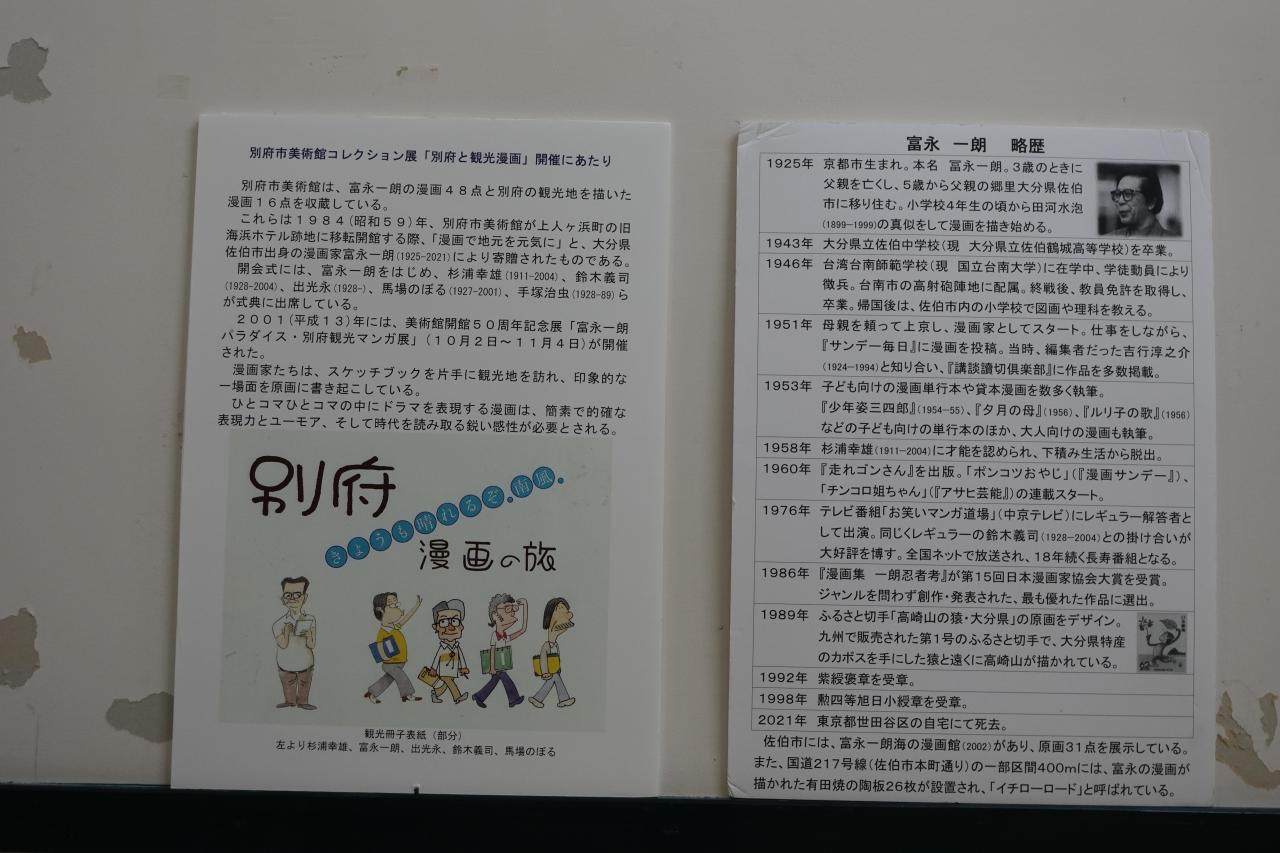 別府市美術館コレクション展「別府と観光漫画」開催にあたり
別府市美術館は、富永一朗の漫画４８点と別府の観光地を描いた
漫画１６点を収蔵している。
これらは１９８４(昭和５９)年、別府市美術館が上人ヶ浜町の旧
海浜ホテル跡地に移転開館する際、「漫画で地元を元気に」と、大分県
佐伯市出身の漫画家富永一朗(1925-2021)により寄贈されたものである。
開会式には、富永一朗をはじめ、杉浦幸雄(1911-2004)、鈴木義司
(1928-2004)、出光永(1928-)、馬場のぼる(1927-2001)、手塚治虫(1928-89)ら
が式典に出席している。
２００１(平成１３)年には、美術館開館５０周年記念展「富永一朗
パラダイス・別府観光マンガ展」(１０月２日～１１月４日)が開催
された。
漫画家たちは、スケッチブックを片手に観光地を訪れ、印象的な
一場面を原画に書き起こしている。
ひとコマひとコマの中にドラマを表現する漫画は、簡素で的確な
表現力とユーモア、そして時代を読み取る鋭い感性が必要とされる。
別府
きょうも晴れるぞ。南風。
漫画の旅
観光冊子表紙（部分）
左より杉浦幸雄、富永一朗、出光永、鈴木義司、馬場のぼる
富永 一朗 略歴
1925年 京都市生まれ。本名 冨永一朗。3歳のときに
父親を亡くし、5歳から父親の郷里大分県佐伯
市に移り住む。小学校4年生の頃から田河水泡
(1899-1999)の真似をして漫画を描き始める。
1943年 大分県立佐伯中学校(現 大分県立佐伯鶴城高等学校)を卒業。
1946年 台湾台南師範学校(現 国立台南大学)に在学中、学徒動員により
徴兵。台南市の高射砲陣地に配属。終戦後、教員免許を取得し、
卒業。帰国後は、佐伯市内の小学校で図画や理科を教える。
1951年 母親を頼って上京し、漫画家としてスタート。仕事をしながら、
『サンデー毎日』に漫画を投稿。当時、編集者だった吉行淳之介
(1924-1994)と知り合い、『講談讀切倶楽部』に作品を多数掲載。
1953年 子ども向けの漫画単行本や貸本漫画を数多く執筆。
『少年姿三四郎』(1954-55)、『夕月の母』(1956)、『ルリ子の歌』(1956)
などの子ども向けの単行本のほか、大人向けの漫画も執筆。
1958年 杉浦幸雄(1911-2004)に才能を認められ、下積み生活から脱出。
1960年 『走れゴンさん』を出版。「ポンコツおやじ」(『漫画サンデー』)、
「チンコロ姐ちゃん」(『アサヒ芸能』)の連載スタート。
1976年 テレビ番組「お笑いマンガ道場」(中京テレビ)にレギュラー解答者と
して出演。同じくレギュラーの鈴木義司(1928-2004)との掛け合いが
大好評を博す。全国ネットで放送され、18年続く長寿番組となる。
1986年 『漫画集 一朗忍者考』が第15回日本漫画家協会大賞を受賞。
ジャンルを問わず創作・発表された、最も優れた作品に選出。
1989年 ふるさと切手「高崎山の猿・大分県」の原画をデザイン。
九州で販売された第1号のふるさと切手で、大分県特産
のカボスを手にした猿と遠くに高崎山が描かれている。
1992年 紫綬褒章を受章。
1998年 勲四等旭日小綬章を受章。
2021年 東京都世田谷区の自宅にて死去。
佐伯市には、富永一朗海の漫画館(2002)があり、原画31点を展示している。
また、国道217号線(佐伯市本町通り)の一部区間400mには、富永の漫画が
描かれた有田焼の陶板26枚が設置され、「イチローロード」と呼ばれている。